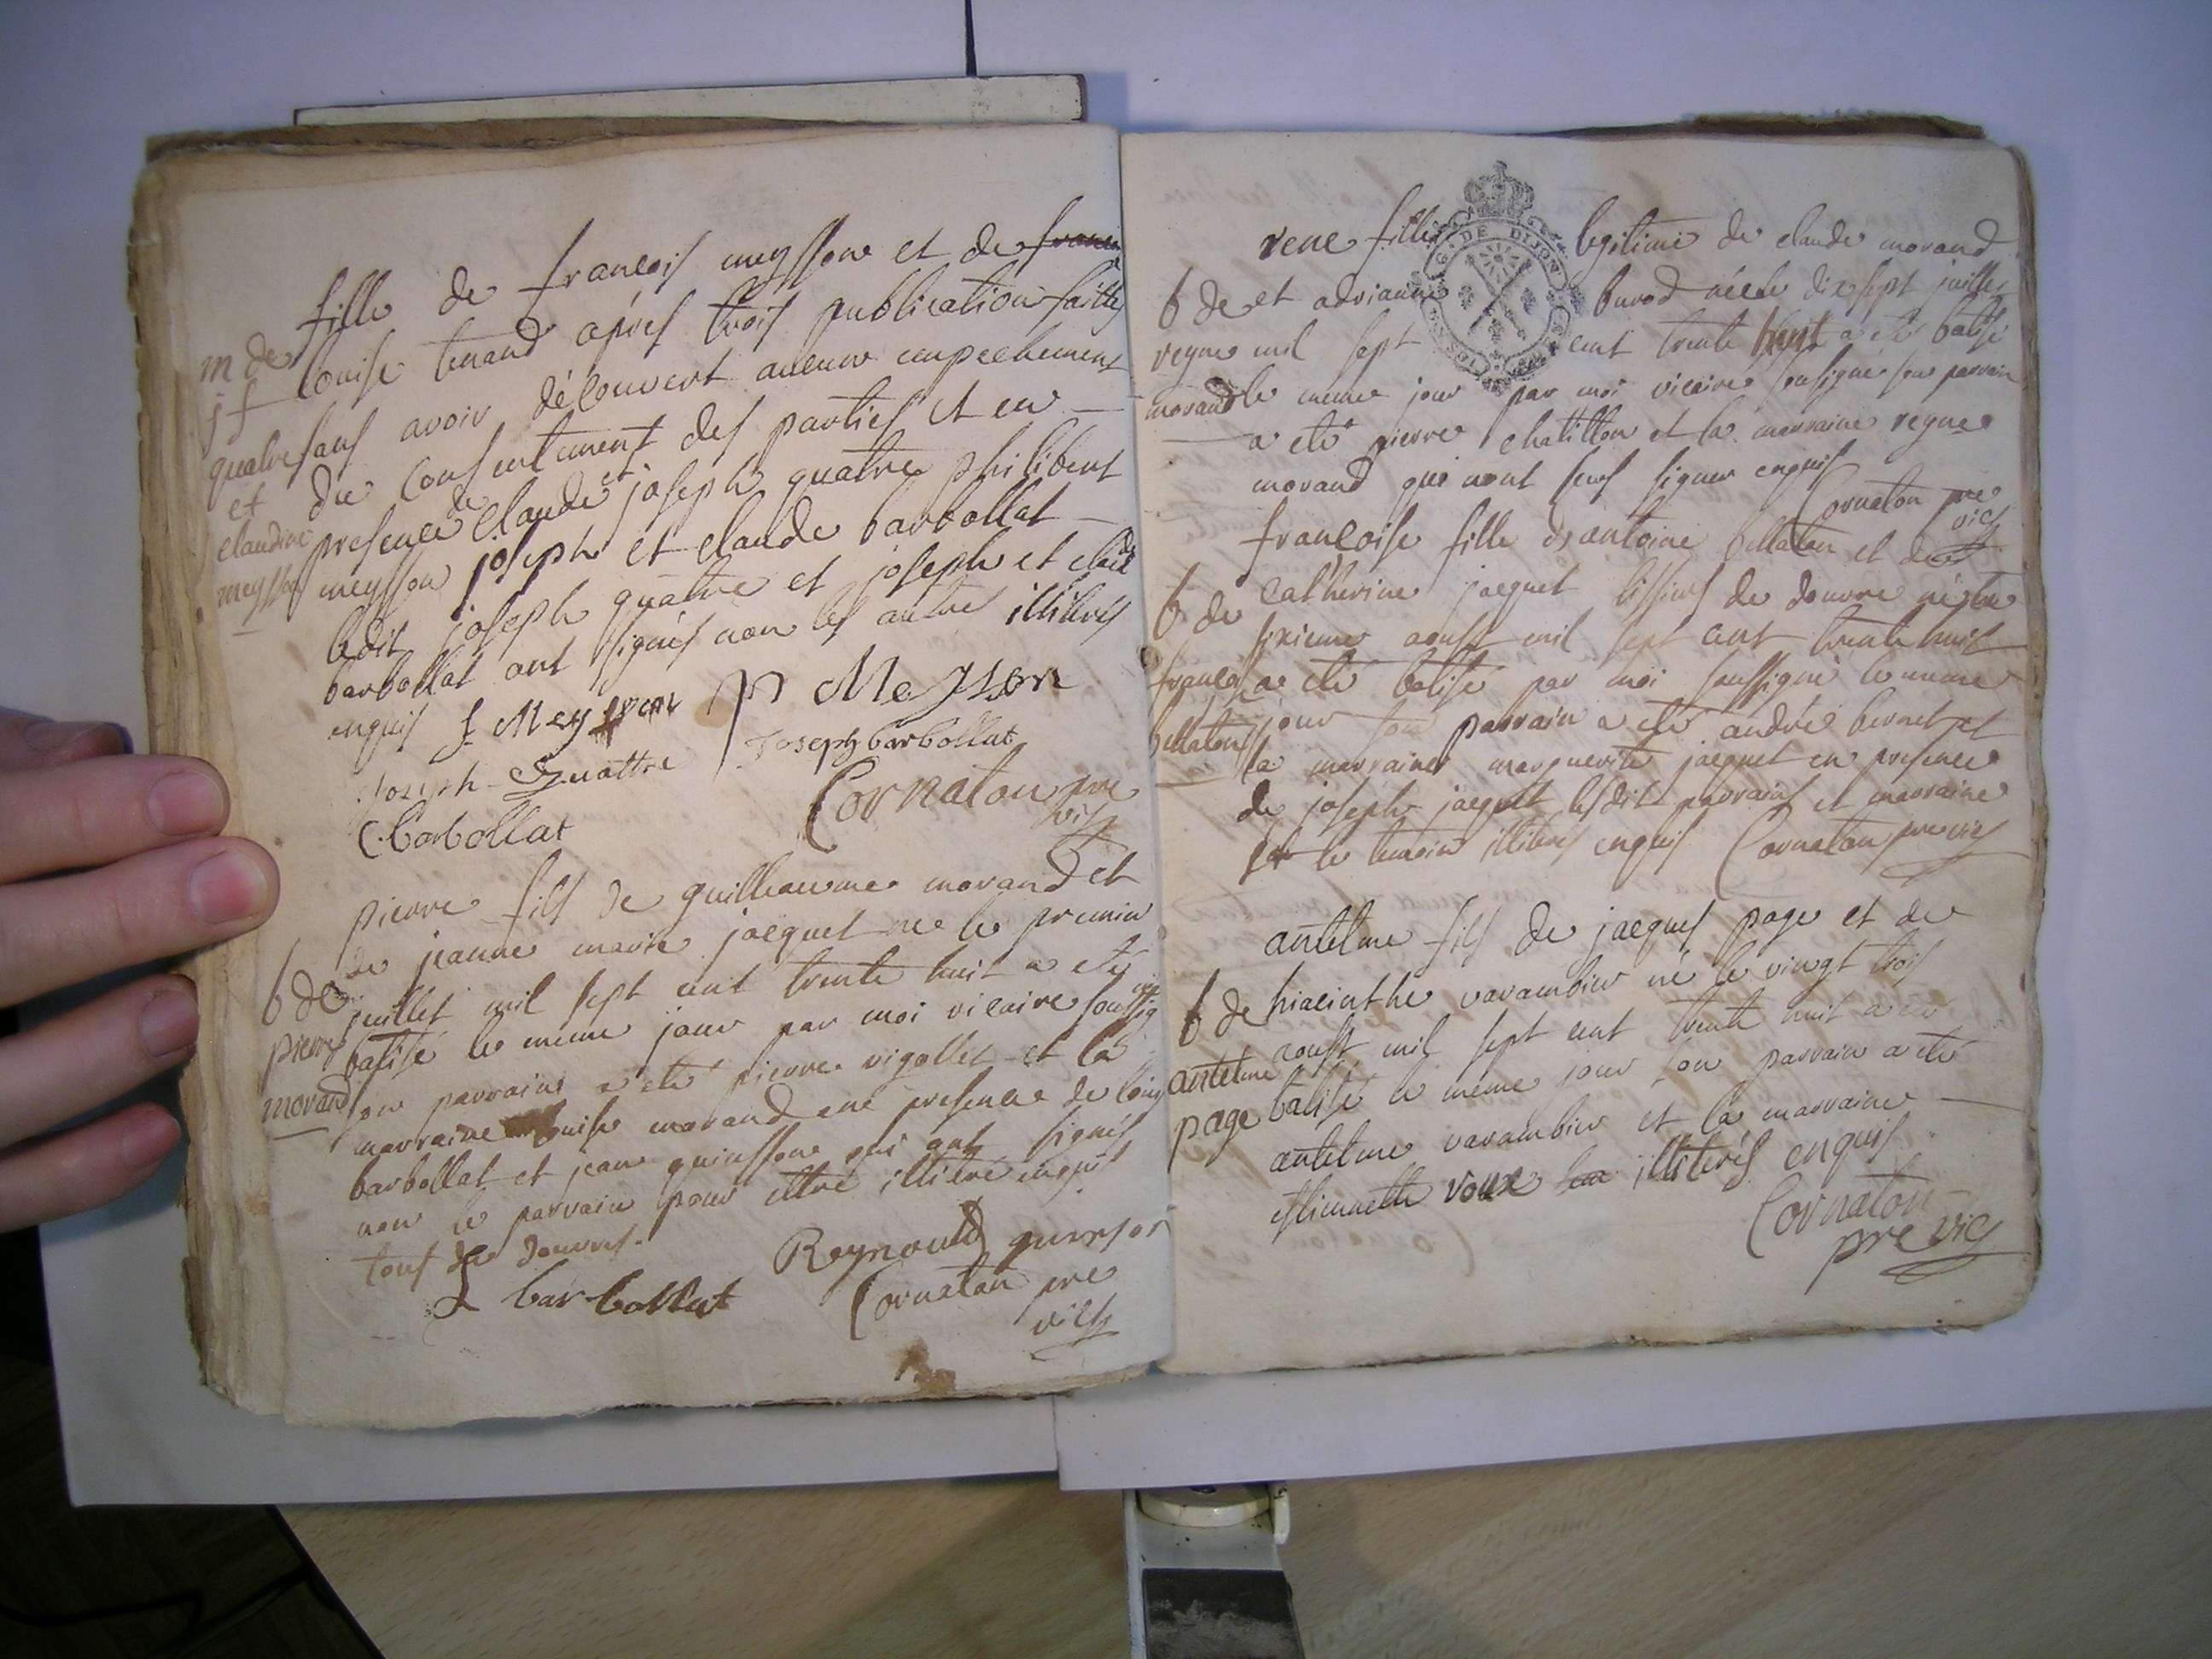 fille de francois meysson et de
m de louise tenand aprés trois publications faittes
jf sans avoir découvert aucun empechement
quatre du consentement des parties et en
et presence de claude et joseph quatre philibert
claudine meysson joseph et claude barbollat
meysson ledit joseph quatre et joseph et claude
barbollat ont signés non les autres illiterés
enquis f Meysson P Meyson
Joseph Quattre Joseph barbollat
C barbollat Cornaton pre
vic
pierre fils de guilleaume morand et
de jeanne marie jacquet né le premier
b de juillet mil sept cent trente huit a eté
pierre batisé le meme jour par moi vicaire soussigné
morand son parrain a eté pierre vigollet et la
marraine louise morand en presence de
barbollat et jean quinsson qui ont signés
non le parrain pour ettre illiteré enquis
tous de douvres.
L barbollat Reymond quinson
Cornaton pre
vic
rene fille legitime de claude morand
G. DE DIJON
b de et adrianne burod née le dix sept juillet
regne mil sept cent trente huit a eté batisé
morand le meme jour par moi vicaire soussigné son parrain
a eté pierre chatillon et la marraine regne
morand qui nont seus signer enquis
Cornaton pre
vic
françoise fille d'antoine billaton et de
b de catherine jacquet de douvre née le
sixieme aoust mil sept cent trente huit
a eté batisé par moi soussigné le meme
jour son parrain a eté andré bernet et
la marraine marguerite jacquet en presence
de joseph jacquet lesdits parrains et marraine
et le temoin illiterés enquis Cornaton pre vic
antelme fils de jacques page et de
b de hiacinthe varambier né le vingt trois
antelme aoust mil sept cent trente huit a eté
page batisé le meme jour son parrain a eté
antelme varambier et la marraine
estiennette roux illiterés enquis
Cornaton
pre vic